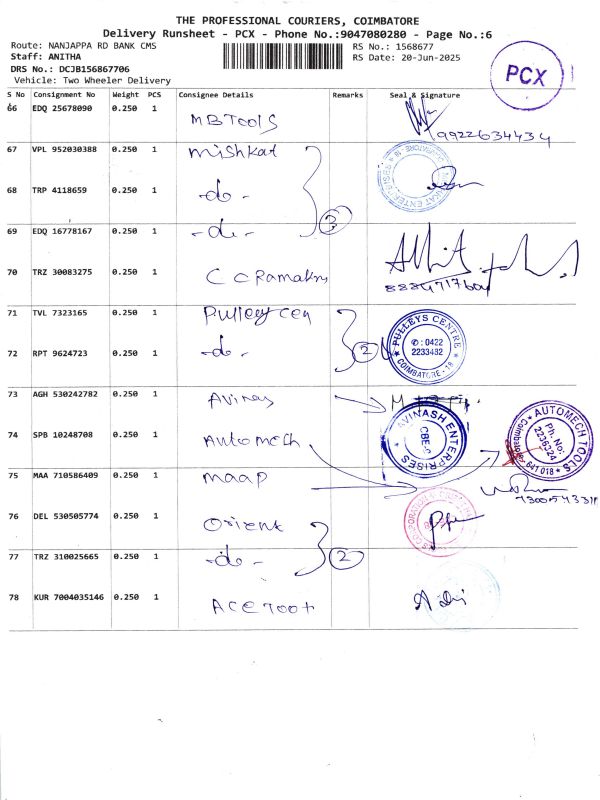 THE PROFESSIONAL COURIERS, COIMBATORE
Delivery Runsheet - PCX - Phone No.:9047080280 - Page No.:6
Route: NANJAPPA RD BANK CMS
RS No.: 1568677
Staff: ANITHA
RS Date: 20-Jun-2025
DRS No.: DCJB156867706
Vehicle: Two Wheeler Delivery
PCX
S No Consignment No Weight PCS Consignee Details Remarks Seal & Signature
66 EDQ 25678090 0.250 1 MBTools
9922634434
67 VPL 952030388 0.250 1 Mishkat
68 TRP 4118659 0.250 1 -do-
3
69 EDQ 16778167 0.250 1 -do-
70 TRZ 30083275 0.250 1 C C Ramakrn
71 TVL 7323165 0.250 1 Pulley Cen
PULLEYS CENTRE
✆ : 0422
2233432
COIMBATORE - 18
72 RPT 9624723 0.250 1 -do- 2
73 AGH 530242782 0.250 1 Avinas
AVINASH ENTERPRISES
CBE-
AUTOMECH TOOLS
Ph. No:
2236324
Coimbatore 641 018
74 SPB 10248708 0.250 1 Automech
75 MAA 710586409 0.250 1 maap
76 DEL 530505774 0.250 1 Orient
77 TRZ 310025665 0.250 1 -do- 2
78 KUR 7004035146 0.250 1 ACE Toot